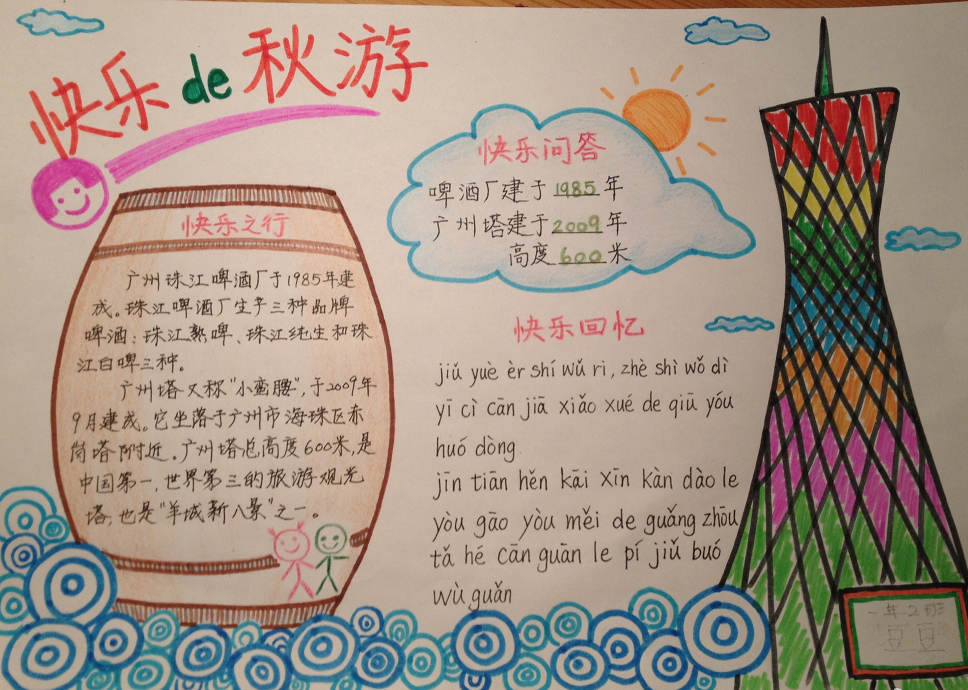 快乐de秋游
快乐之行
广州珠江啤酒厂于1985年建
成。珠江啤酒厂生产三种品牌
啤酒：珠江熟啤、珠江纯生和珠
江白啤三种。
广州塔又称“小蛮腰”，于2009年
9月建成。它坐落于广州市海珠区赤
岗塔附近。广州塔总高度600米，是
中国第一，世界第三的旅游观光
塔，也是“羊城新八景”之一。
快乐问答
啤酒厂建于1985年
广州塔建于2009年
高度600米
快乐回忆
jiǔ yuè èr shí wǔ rì, zhè shì wǒ dì
yī cì cān jiā xiǎo xué de qiū yóu
huó dòng
jīn tiān hěn kāi xīn kàn dào le
yòu gāo yòu měi de guǎng zhōu
tǎ hé cān guān le pí jiǔ buó
wù guǎn
一年2班
豆豆